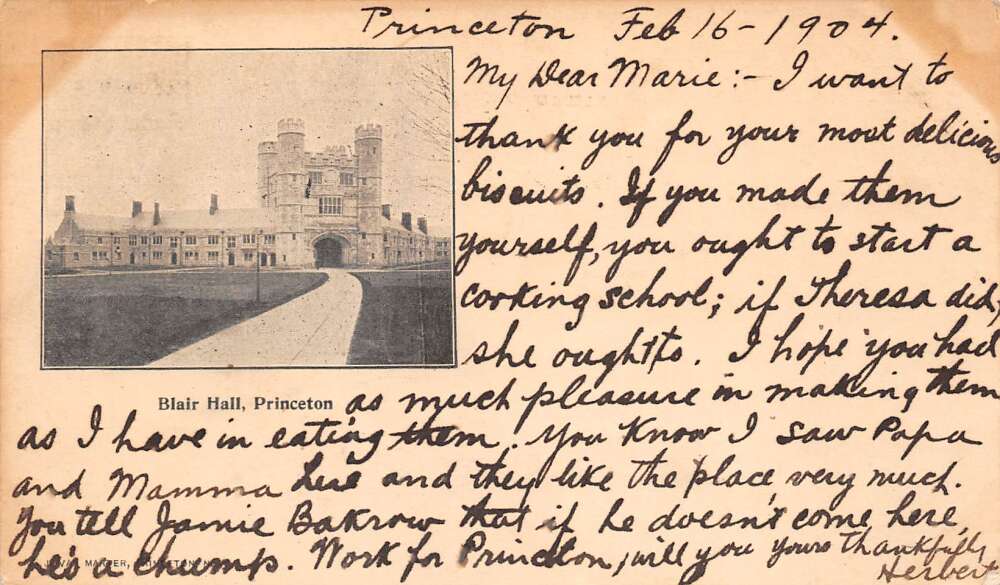 Princeton Feb 16 - 1904.
My Dear Marie:- I want to
thank you for your most delicious
biscuits. If you made them
yourself, you ought to start a
cooking school; if Theresa did,
she ought to. I hope you had
Blair Hall, Princeton
as much pleasure in making them
as I have in eating them. You know I saw Papa
and Mamma here and they like the place very much.
You tell Jamie Bakrow that if he doesn't come here,
he's a chump. Work for Princeton, will you yours thankfully
Herbert